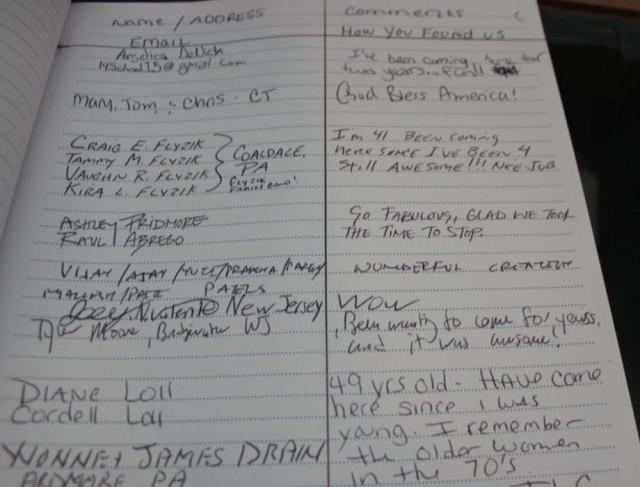 Name / ADDRESS
Comments
Email
How You Found us
Angelica
I've been coming here for
two years..
Mary, Tom, & Chris - CT
God Bless America!
CRAIG E. FLYZIK
TAMMY M. FLYZIK
VAUGHN R. FLYZIK
KIRA L. FLYZIK
COALDALE,
PA
I'm 41 BEEN Coming
here since I'VE BEEN 4
Still AWESOME!!! NICE JOB
ASHLEY PRIDMORE
RAUL ABREGO
SO FABULOUS, GLAD WE TOOK
THE TIME TO STOP.
VIJAY / AJAY /
PATELS
WONDERFUL CREATION
Joey New Jersey
WOW
Moore,
Been wanting to come for years,
and it was awesome.
DIANE Loll
Cordell Loll
49 yrs old - HAVE come
here since I was
young. I remember
the older women
in the 70's
YVONNE + JAMES DRAIN
ARDMORE PA